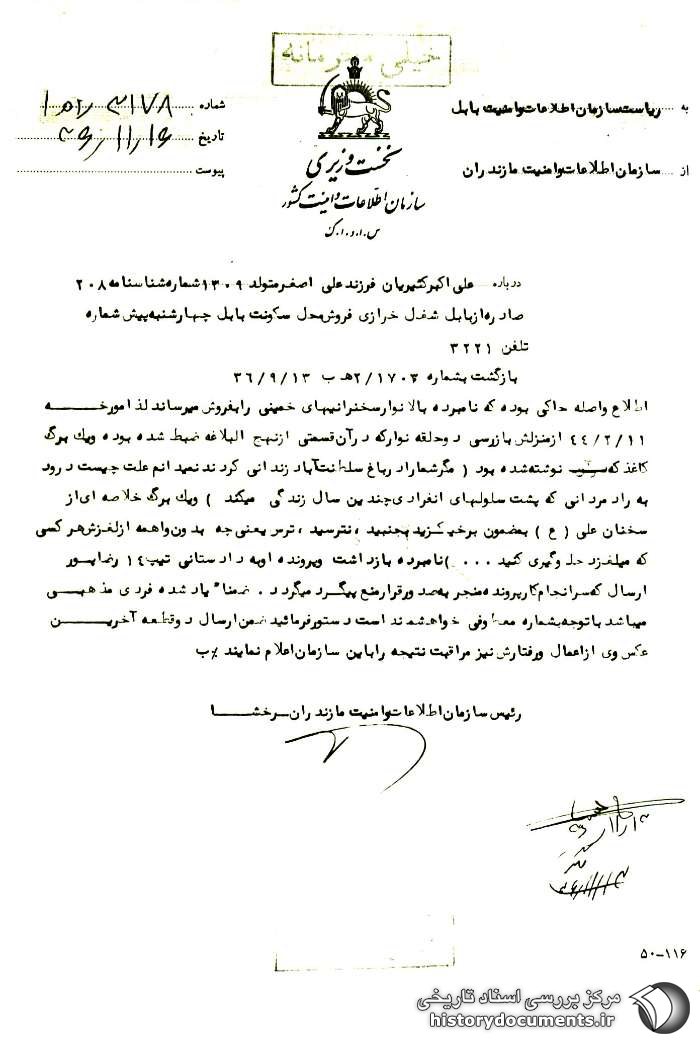 خیلی محرمانه
به ریاست سازمان اطلاعات و امنیت بابل
از سازمان اطلاعات و امنیت مازندران
نخست وزیری
سازمان اطلاعات و امنیت کشور
س.ا.و.ا.ک
شماره ۳۱۷۸
تاریخ
پیوست
درباره علی اکبر کثیریان فرزند علی اصغر متولد ۱۳۰۹ شماره شناسنامه ۲۰۸
صادره از بابل شغل خرازی فروش محل سکونت بابل چهارشنبه پیش شماره
تلفن ۳۲۲۱
بازگشت بشماره ۲/۱۷۰۳ هـ ب ۳۶/۹/۱۳
اطلاع واصله حاکی بوده که نامبرده بالا نوار سخنرانیهای خمینی را بفروش میرساند لذا مورخه
۴۴/۲/۱۱ از منزلش بازرسی دو حلقه نوار که در آن قسمتی از نهج البلاغه ضبط شده بوده و یک برگ
کاغذ که نوشته شده بود ( مگر شما را در باغ سلطنت آباد زندانی کردند نمیدانم علت چیست درود
به راد مردانی که پشت سلولهای انفرادی چندین سال زندگی میکند ) و یک برگ خلاصه ای از
سخنان علی ( ع ) بمضمون برخیزید بجنبید ، نترسید ، ترس یعنی چه بدون واهمه از لغزش هر کسی
که میلغزد جلوگیری کنید ... ) نامبرده بازداشت و پرونده او به دادستانی تیپ ۱۴ رضاپور
ارسال که سرانجام کار پرونده منجر به صدور قرار منع پیگرد میگردد . ضمنا" یاد شده فردی مذهبی
میباشد با توجه بشماره معطوفی خواهشمند است دستور فرمائید ضمن ارسال دو قطعه آخرین
عکس وی از اعمال و رفتارش نیز مراقبت نتیجه را باین سازمان اعلام نمایند %ب
رئیس سازمان اطلاعات و امنیت مازندران - رخشا
۵۰-۱۱۶
مرکز بررسی اسناد تاریخی
historydocuments.ir